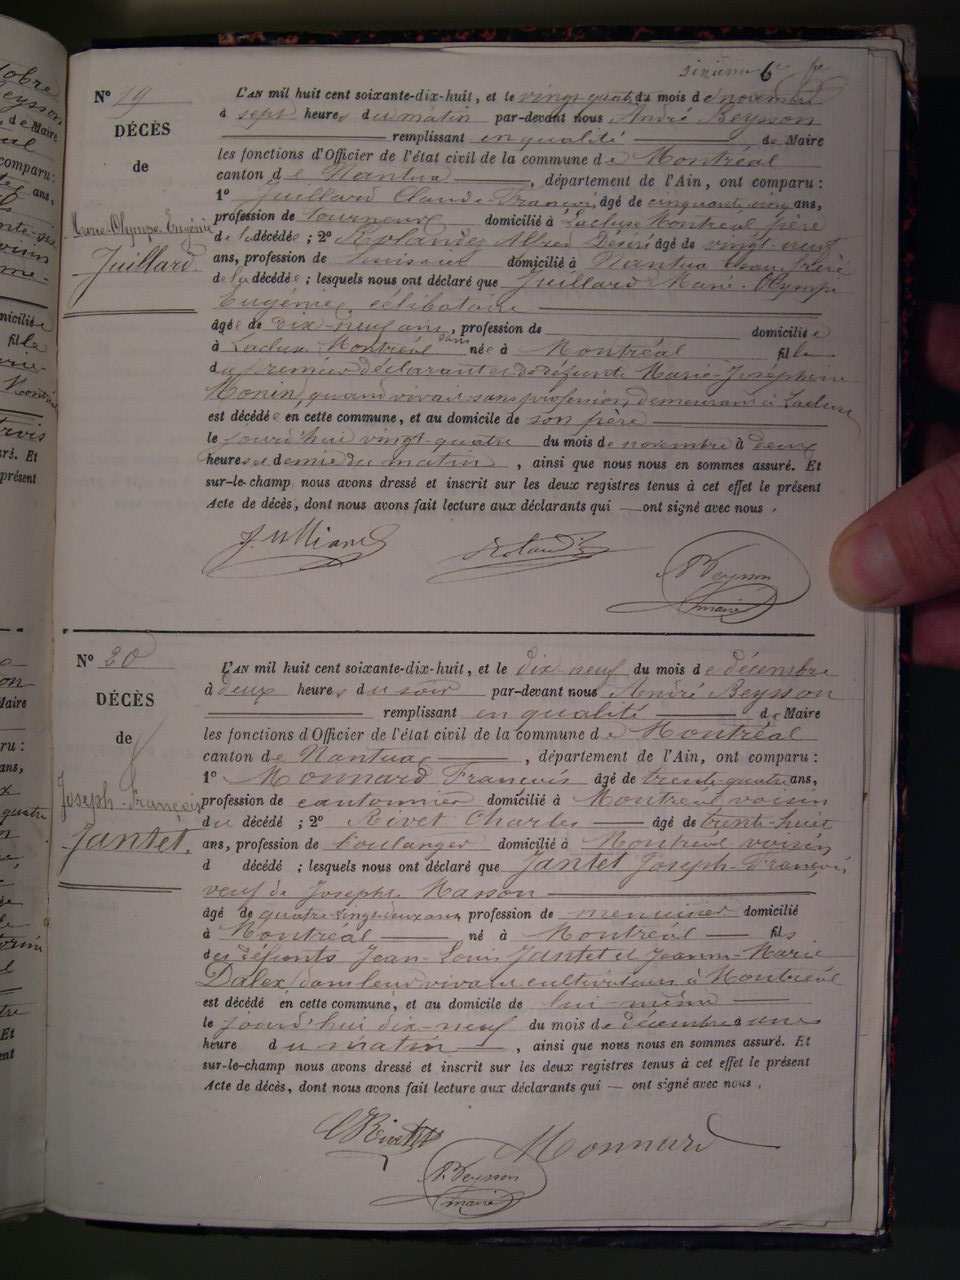 sixième 6e
N° 19
DÉCÈS
de
Marie-Olympe-Eugénie
Juillard.
L'AN mil huit cent soixante-dix-huit, et le vingt quatre du mois de novembre
à sept heures du matin par-devant nous André Beysson
remplissant en qualité de Maire
les fonctions d'Officier de l'état civil de la commune de Montréal
canton de Nantua, département de l'Ain, ont comparu :
1° Juillard Claude-François, âgé de cinquante ans,
profession de tourneur domicilié à Lacluse Montréal père
de la décédée ; 2° Alfred Désiré âgé de vingt-neuf
ans, profession de domicilié à Nantua beau frère
de la décédée ; lesquels nous ont déclaré que Juillard Marie-Olympe
Eugénie, célibataire
âgée de dix-neuf ans, profession de domiciliée
à Lacluse Montréal née à Montréal fille
du premier déclarant et de défunte Marie-Joséphine
Monin, quand vivait sans profession, demeurant à Lacluse
est décédée en cette commune, et au domicile de son père
le jourd'hui vingt-quatre du mois de novembre à deux
heures et demie du matin, ainsi que nous nous en sommes assuré. Et
sur-le-champ nous avons dressé et inscrit sur les deux registres tenus à cet effet le présent
Acte de décès, dont nous avons fait lecture aux déclarants qui ont signé avec nous.
A Beysson
maire
N° 20
DÉCÈS
de
Joseph-François
Jantet.
L'AN mil huit cent soixante-dix-huit, et le dix neuf du mois de décembre
à deux heures du soir par-devant nous André Beysson
remplissant en qualité de Maire
les fonctions d'Officier de l'état civil de la commune de Montréal
canton de Nantua, département de l'Ain, ont comparu :
1° Monnard François âgé de trente-quatre ans,
profession de cantonnier domicilié à Montréal voisin
du décédé ; 2° Rivet Charles âgé de trente-huit
ans, profession de boulanger domicilié à Montréal voisin
d décédé ; lesquels nous ont déclaré que Jantet Joseph-François,
veuf de Josephte Masson
âgé de quatre-vingt-deux ans, profession de menuisier domicilié
à Montréal né à Montréal fils
des défunts Jean-Louis Jantet et Jeanne-Marie
Dalex, dans leur vivant cultivateurs à Montréal
est décédé en cette commune, et au domicile de lui-même
le jourd'hui dix-neuf du mois de décembre à une
heure du matin, ainsi que nous nous en sommes assuré. Et
sur-le-champ nous avons dressé et inscrit sur les deux registres tenus à cet effet le présent
Acte de décès, dont nous avons fait lecture aux déclarants qui ont signé avec nous.
C Rivet
Monnard
A. Beysson
maire